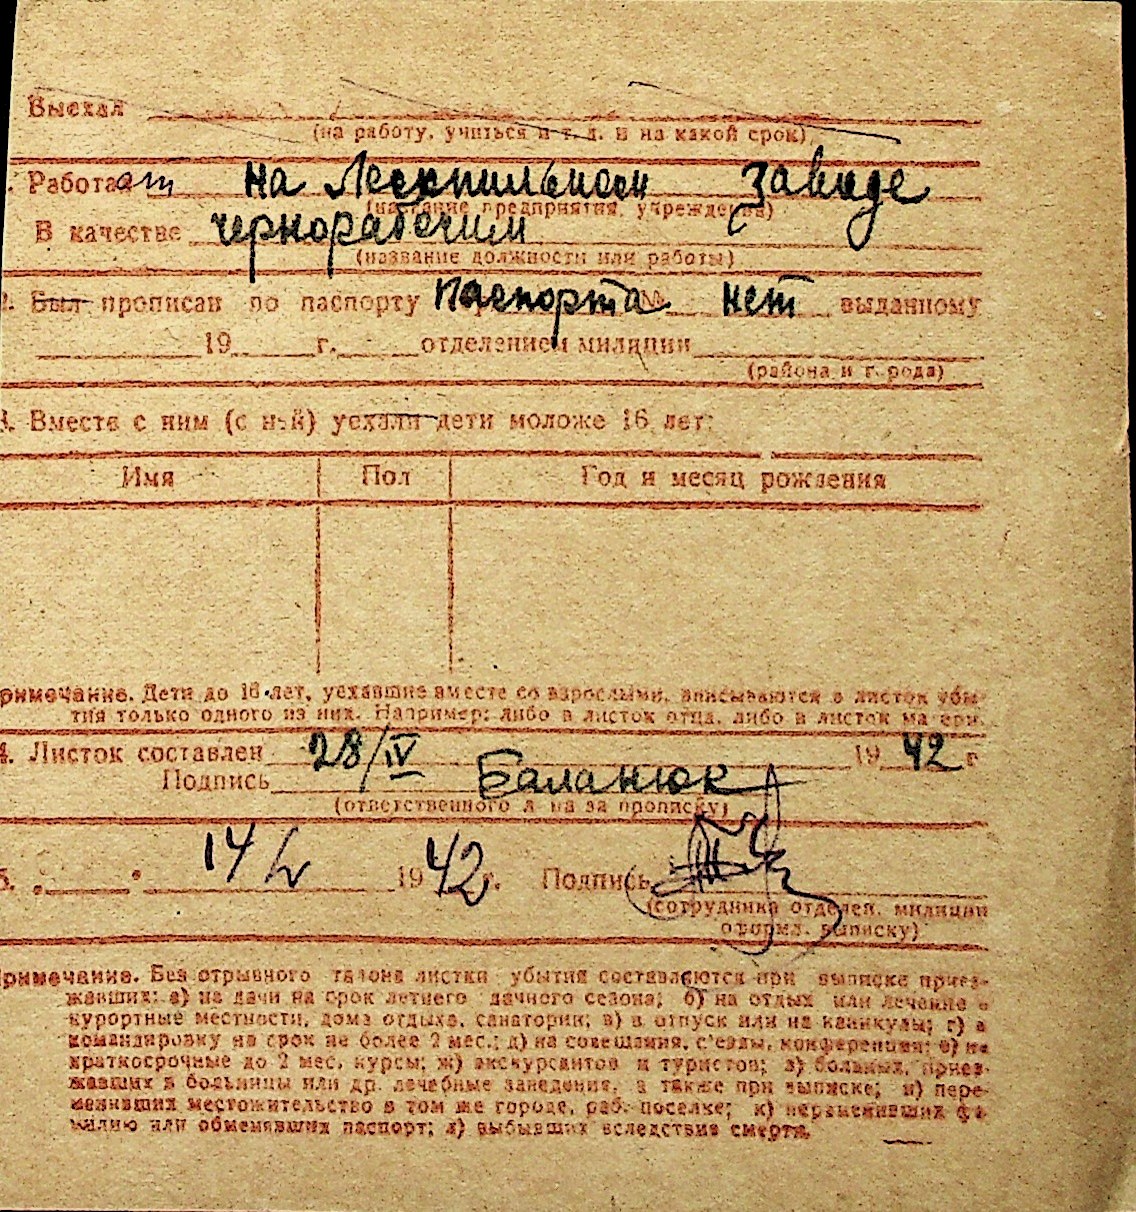 Выехал
(на работу, учиться и т. д. и на какой срок)
. Работает на Лесопильном заводе
(название предприятия, учреждения)
В качестве чернорабочим
(название должности или работы)
2. Был прописан по паспорту паспорта № нет выданному
19 г. отделением милиции
(района и города)
3. Вместе с ним (с ней) уехали дети моложе 16 лет:
Имя Пол Год и месяц рождения
римечание. Дети до 16 лет, уехавшие вместе со взрослыми, вписываются в листок убы-
тия только одного из них. Например: либо в листок отца, либо в листок матери.
4. Листок составлен 28/IV 1942 г
Подпись Баланюк
(ответственного лица за прописку)
5. 14 V 1942 г. Подпись
(сотрудника отделен. милиции
оформл. выписку)
Примечание. Без отрывного талона листки убытия составляются при выписке приез-
жавших: а) на дачи на срок летнего дачного сезона; б) на отдых или лечение в
курортные местности, дома отдыха, санатории; в) в отпуск или на каникулы; г) в
командировку на срок не более 2 мес.; д) на совещания, с'езды, конференции; е) на
краткосрочные до 2 мес. курсы; ж) экскурсантов и туристов; з) больных, приез-
жавших в больницы или др. лечебные заведения, а также при выписке; и) пере-
менивших местожительство в том же городе, раб. поселке; к) переменивших фа-
милию или обменявших паспорт; л) выбывших вследствие смерти.